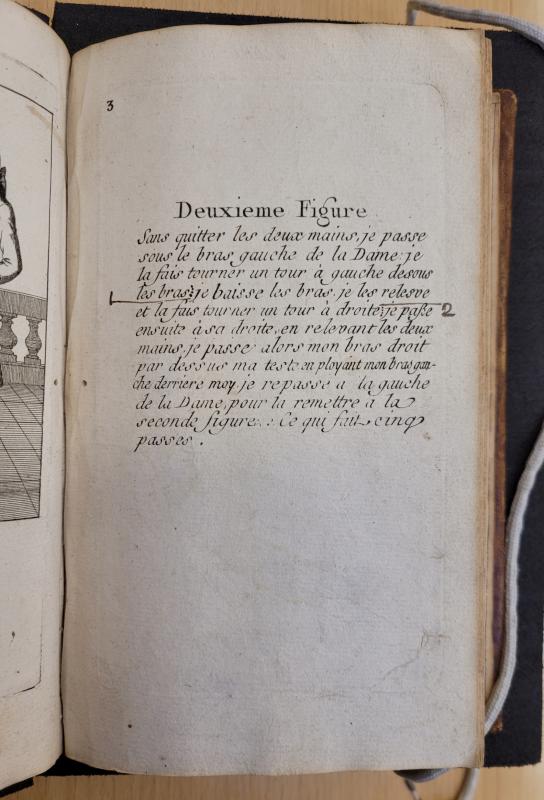 3
Deuxieme Figure
Sans quitter les deux mains, je passe
sous le bras gauche de la Dame; je
la fais tourner un tour à gauche desous
les bras; je baisse les bras, je les relesve
et la fais tourner un tour à droite; je paſse 2
ensuite à sa droite, en relevant les deux
mains, je passe alors mon bras droit
par dessus ma teste en ployant mon bras gau-
che derriere moy, je repasse a la gauche
de la Dame, pour la remettre a la
seconde figure. : Ce qui fait cinq
passes.